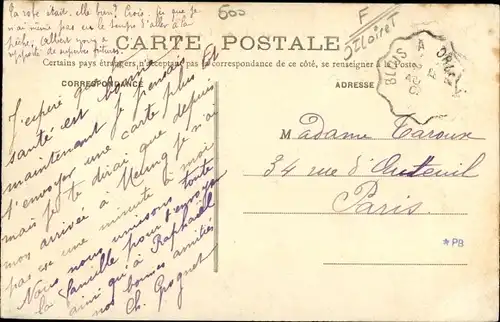 Ta robe était-elle bien? Crois-
n'ai même pas eu le temps d'aller à la
pêche, (Albert nous a
600
F
Loiret
CARTE POSTALE
Certains pays étrangers n'acceptant pas la correspondance de ce côté, se renseigner à la Poste
CORRESPONDANCE
ADRESSE
BLOIS A
J'espère que
santé est bonne
maintenant je pensais
t'envoyer une carte plus
mais je te dirai que depuis
mon arrivée à Meung je n'ai
pas eu une minute à moi
Nous nous unissons toute
la famille pour t'envoyer
ainsi qu'à Raphaël
nos bonnes amitiés
Ch. Grognet
M Madame Taroux
34 rue d'Auteuil
Paris.
*PB